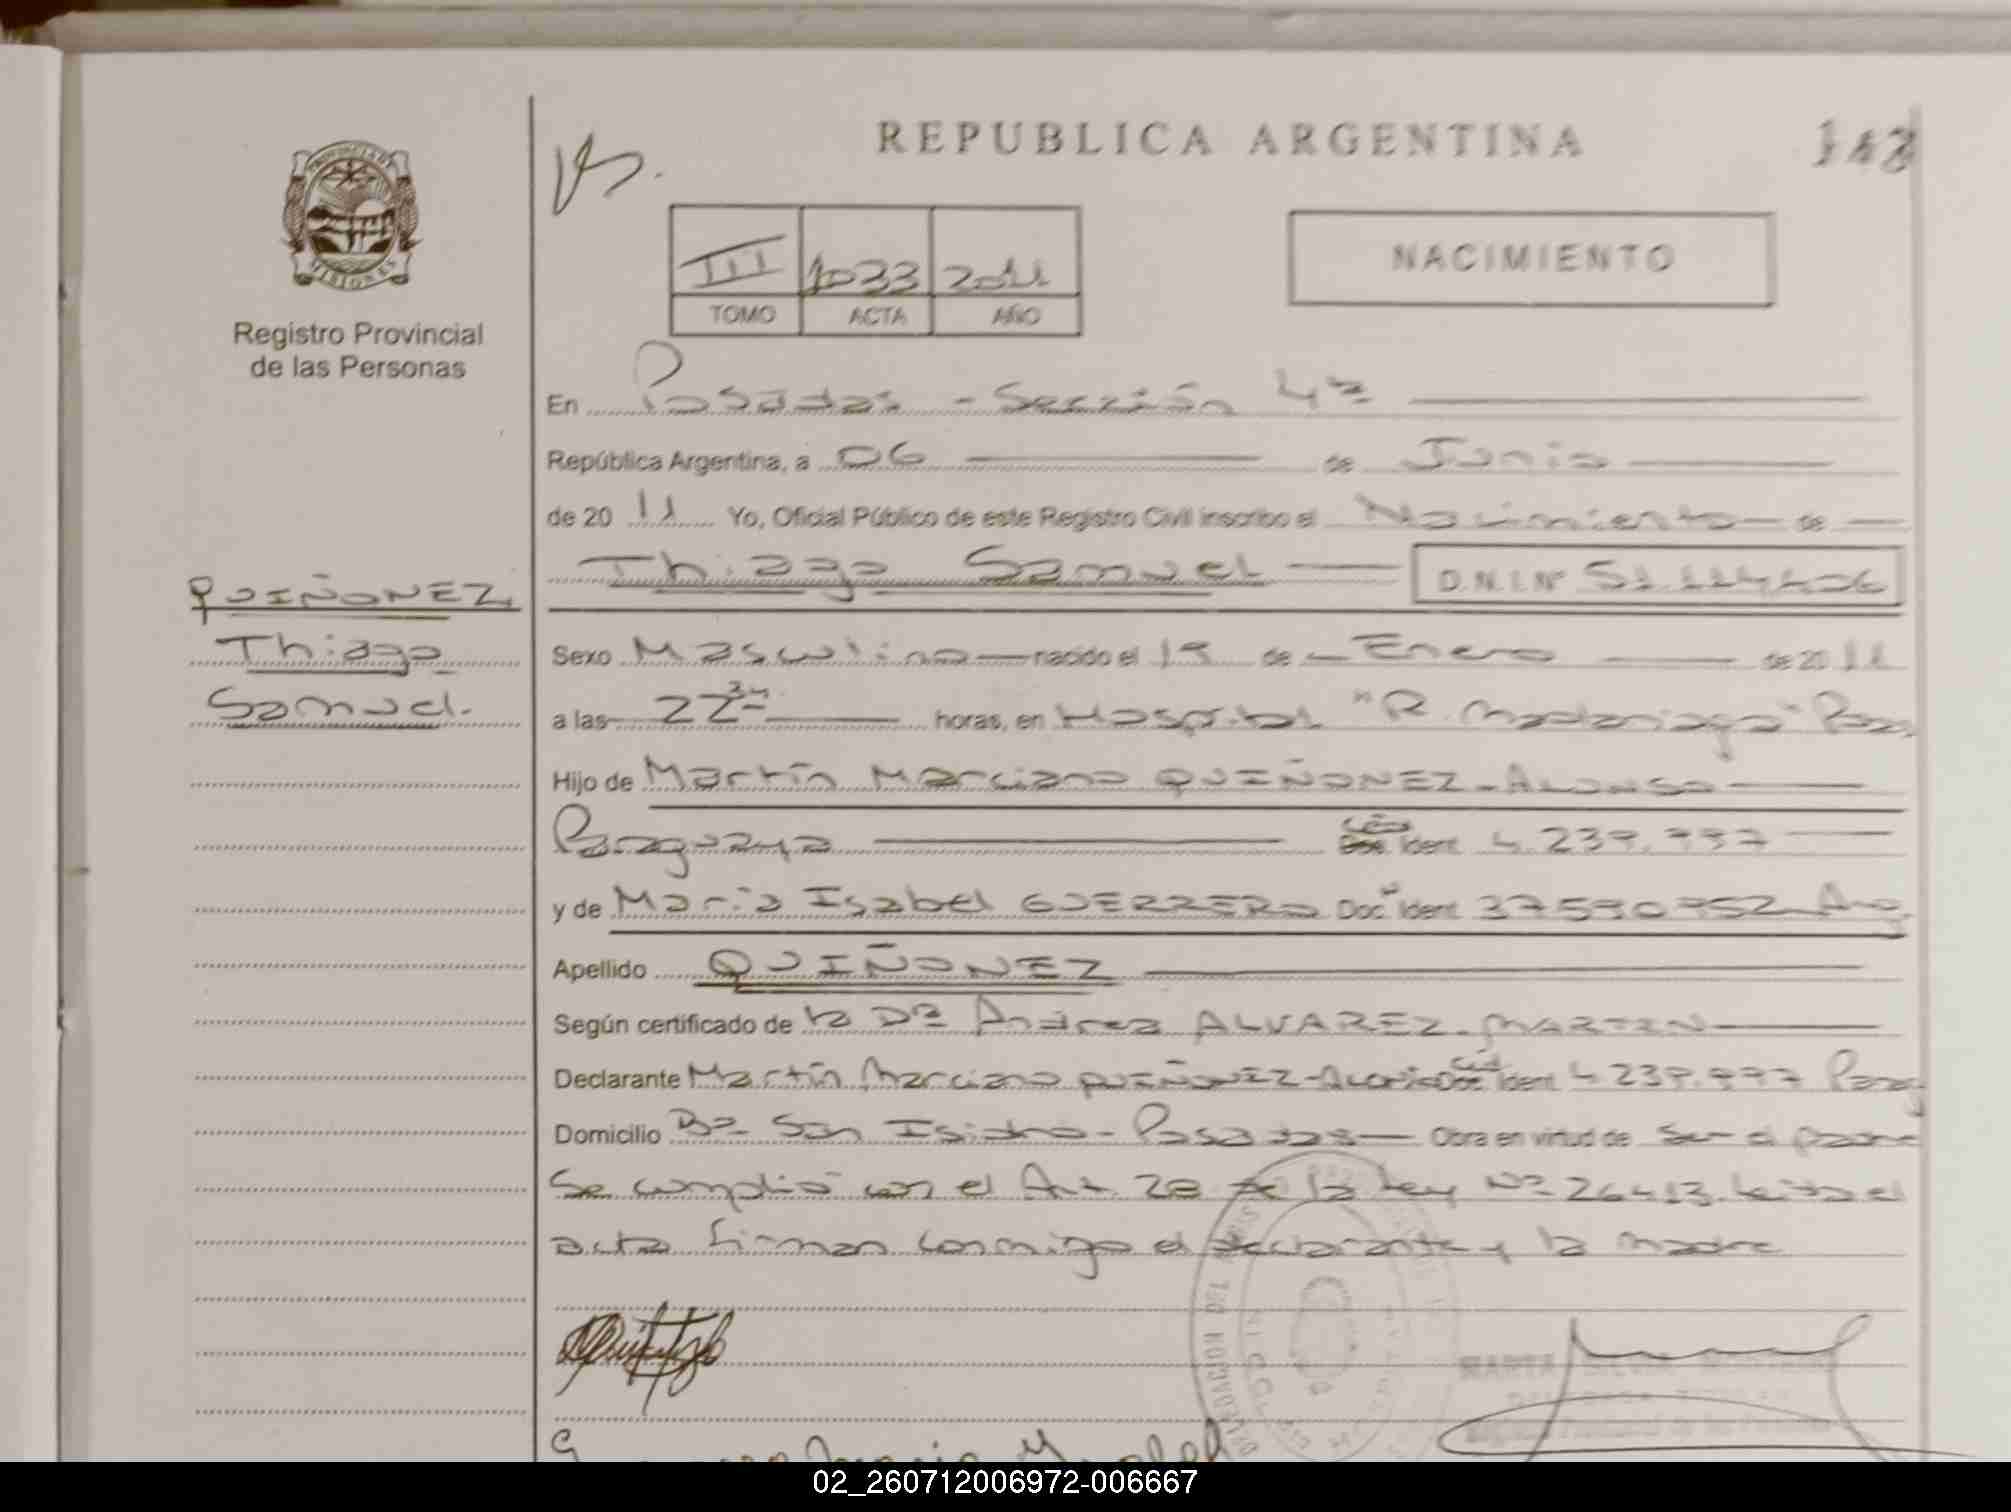 REPUBLICA ARGENTINA
PROVINCIA DE
MISIONES
Registro Provincial
de las Personas
III 1033 2011
TOMO ACTA AÑO
NACIMIENTO
En Posadas - Sección 4ta
República Argentina, a 06 de Junio
de 20 11 Yo, Oficial Público de este Registro Civil inscribo el Nacimiento de
Thiago Samuel D.N.I. Nº
QUIÑONEZ
Thiago
Samuel.
Sexo Masculino nacido el 19 de Enero de 20 11
a las 22 horas, en Hospital "R. Madariaga" Pos,
Hijo de Martín Marciano QUIÑONEZ - ALONSO
Paraguayo Céd Ident 4.239.997
y de María Isabel GUERRERO Doc Ident 37590952 Arg
Apellido QUIÑONEZ
Según certificado de la Dra Andrea ALVAREZ - MARTIN
Declarante Martín Marciano QUIÑONEZ - Alonso Céd Ident 4.239.997 Parag
Domicilio Bº San Isidro - Posadas Obra en virtud de Ser el padre
Se cumplió con el Art. 28 de la Ley Nº 26413. Leída el
acta firman conmigo el declarante y la madre
MARTA
02_260712006972-006667